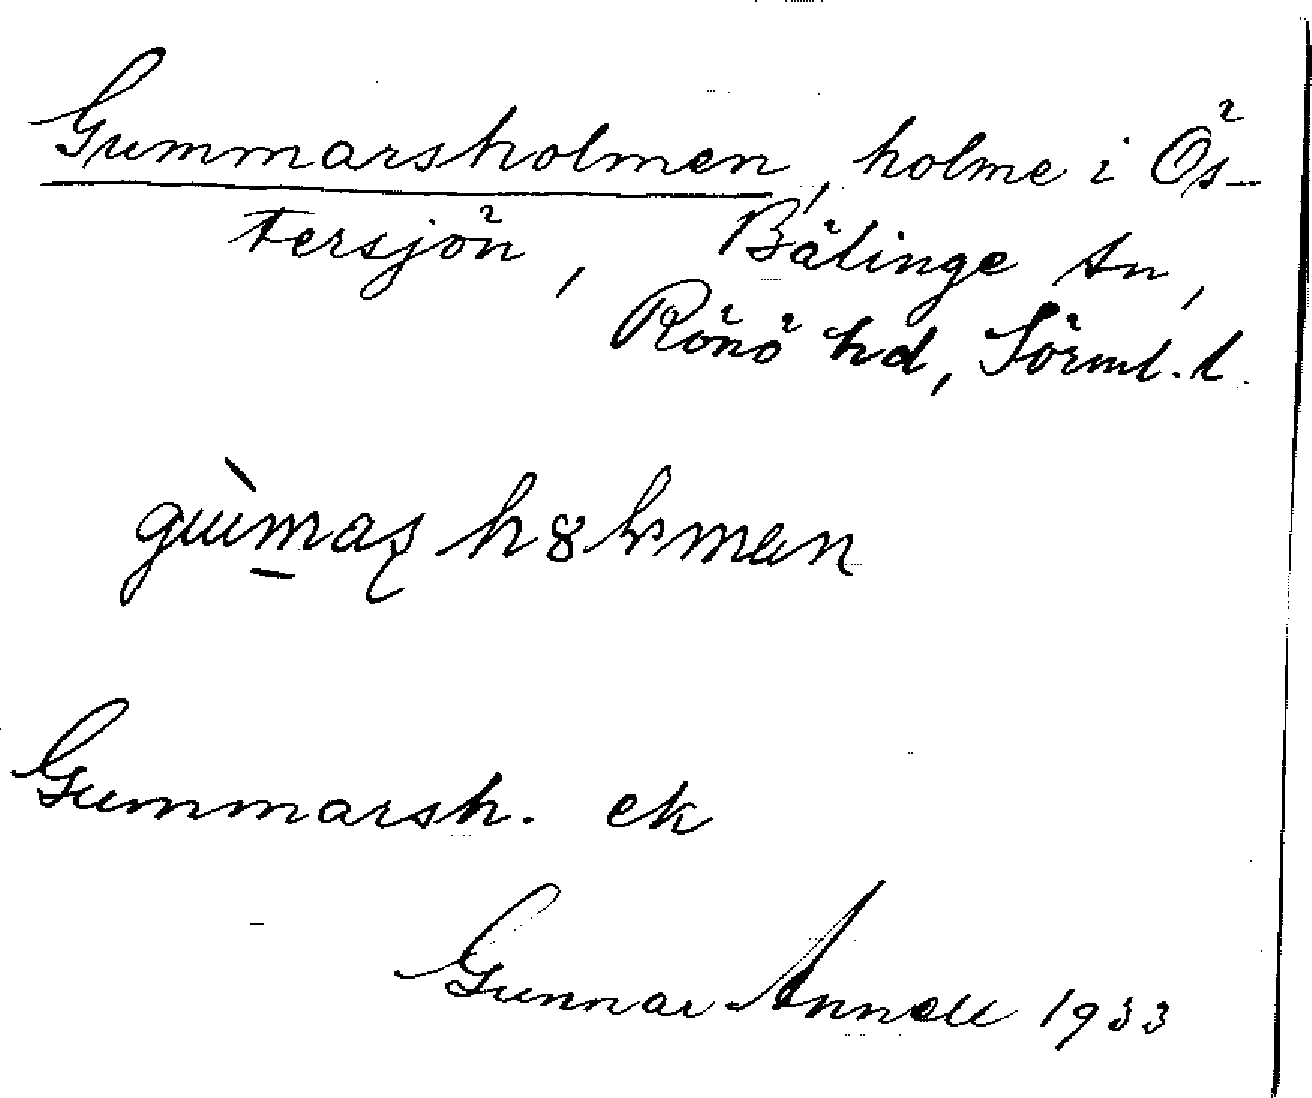 Gummarsholmen, holme i Ös-
tersjön, Bälinge sn,
Rönö hd, Sörml. l.
Gummarsh. ek
Gunnar Annell 1933